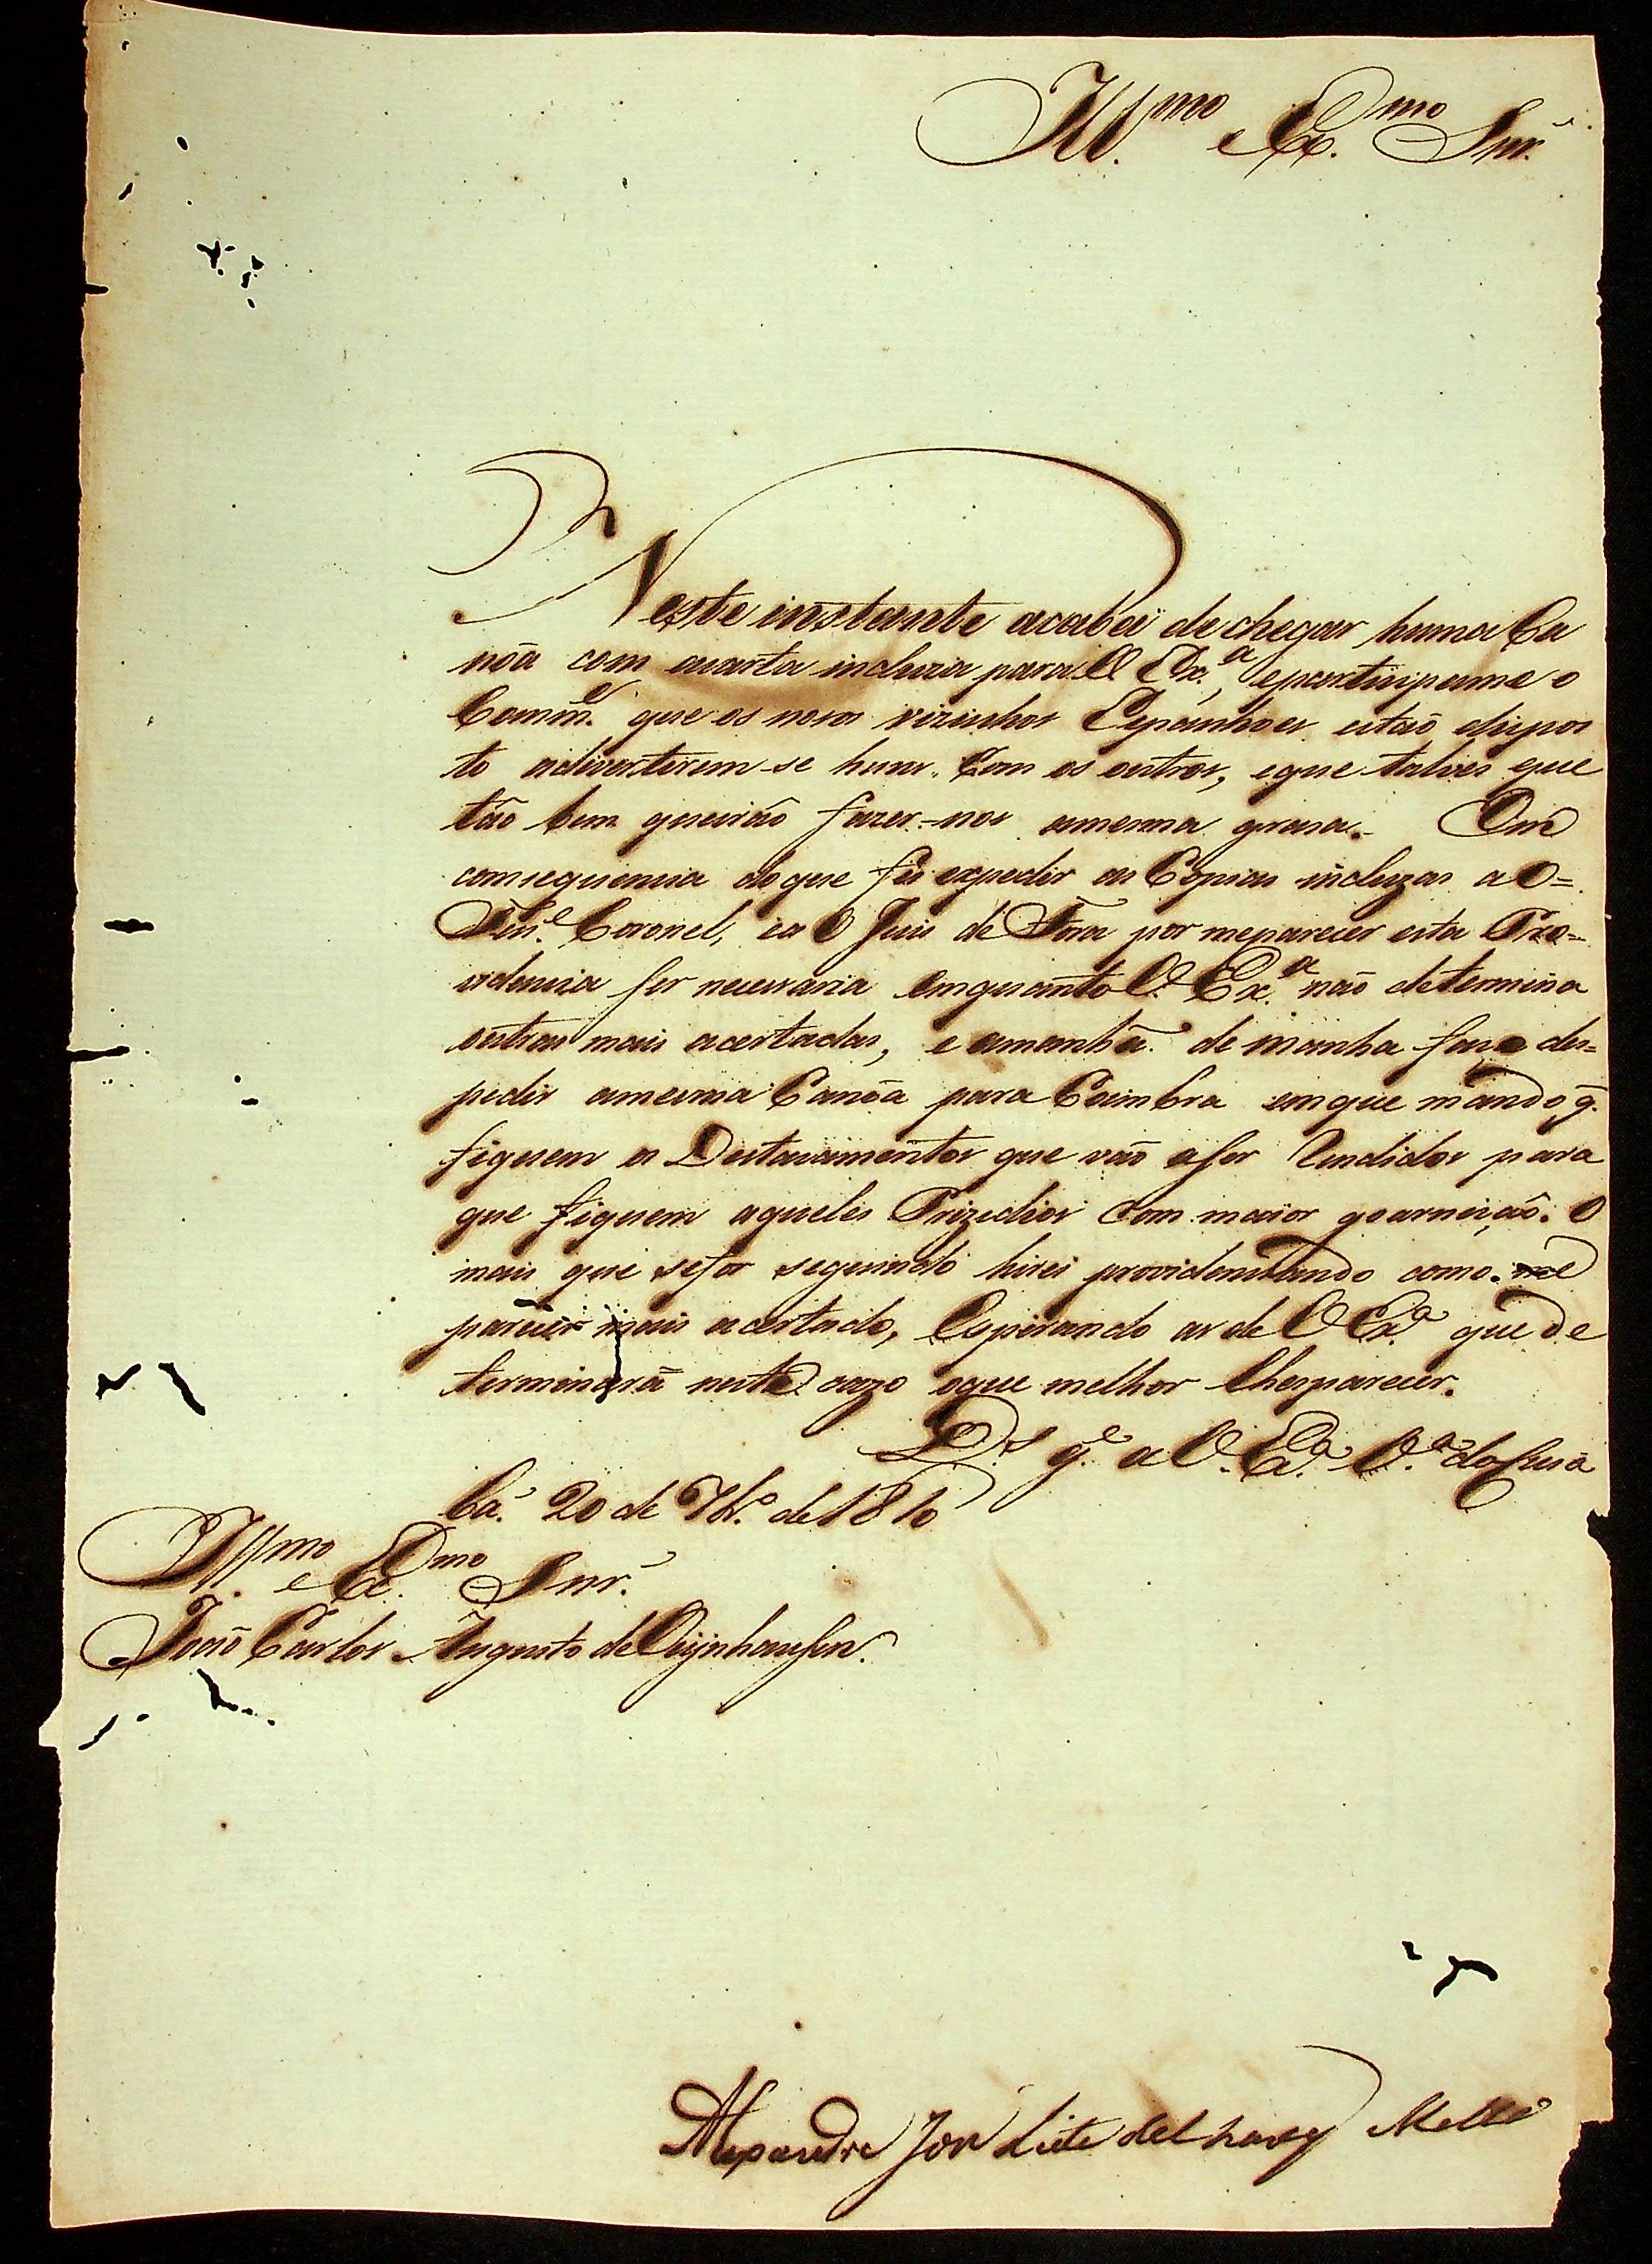 Ill.mo e Ex.mo Snr.
Neste instante acaba de chegar huma Ca
nôa com acarta incluza para V Ex.a, eparticipame o
Comm.e que os nosos vizinhos Espanhoes estaõ dispos
to adivertirem-se huns. Com os outros, eque talves que
tão bem queirão fazer-nos amesma grasa. Em
consequencia doque fis expedir as Copias incluzas aO=
Ten.e Coronel, eaO Juis de Fora por meparecer esta Pro=
videncia ser necesaria Emquanto V. Ex.a não determina
outras mais acertadas, e amenhã de manha faso des=
pedir amesma Canôa para Coimbra emque mando q̃.
fiquem os Destacamentos que vaõ aser Rendidos para
que fiquem aqueles Prizidios Com maior goarnição. O
mais que sefor seguindo hirei providenciando como. me
parecer mais acertado, Esperando as de V Ex.a que de
terminará neste cazo oque melhor lheparecer.
D.s g.e a V. Ex.a V.a do Cuiá
bá. 20 de 7br.o de 1810
Ill.mo e Ex.mo Snr.
João Carlos Augusto de Oeynhausen.
Alexandre Joze Leite de Chaves Mello